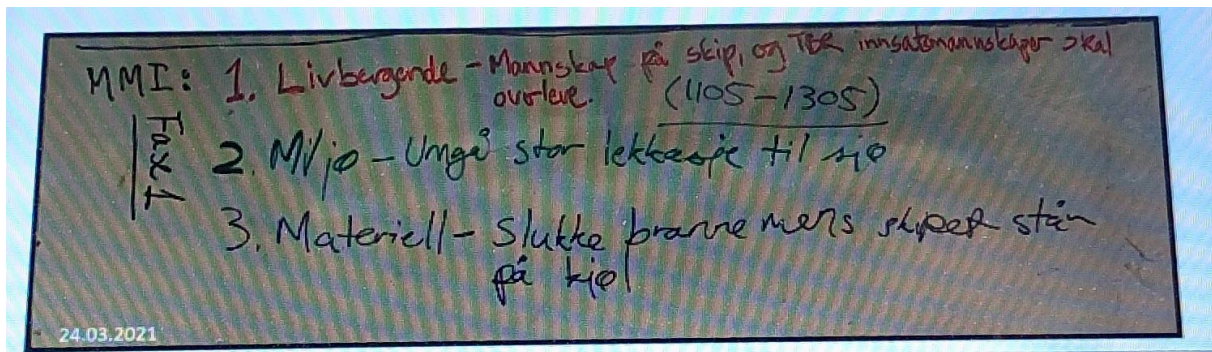 MMI: 1. Livbergende - Mannskap på skip, og TBR innsatsmannskaper skal
overleve. (1105-1305)
Fase 1
2. Miljø - Umgå stor lekkasje til sjø
3. Materiell - Slukke branne mens skipet står
på kjøl
24.03.2021